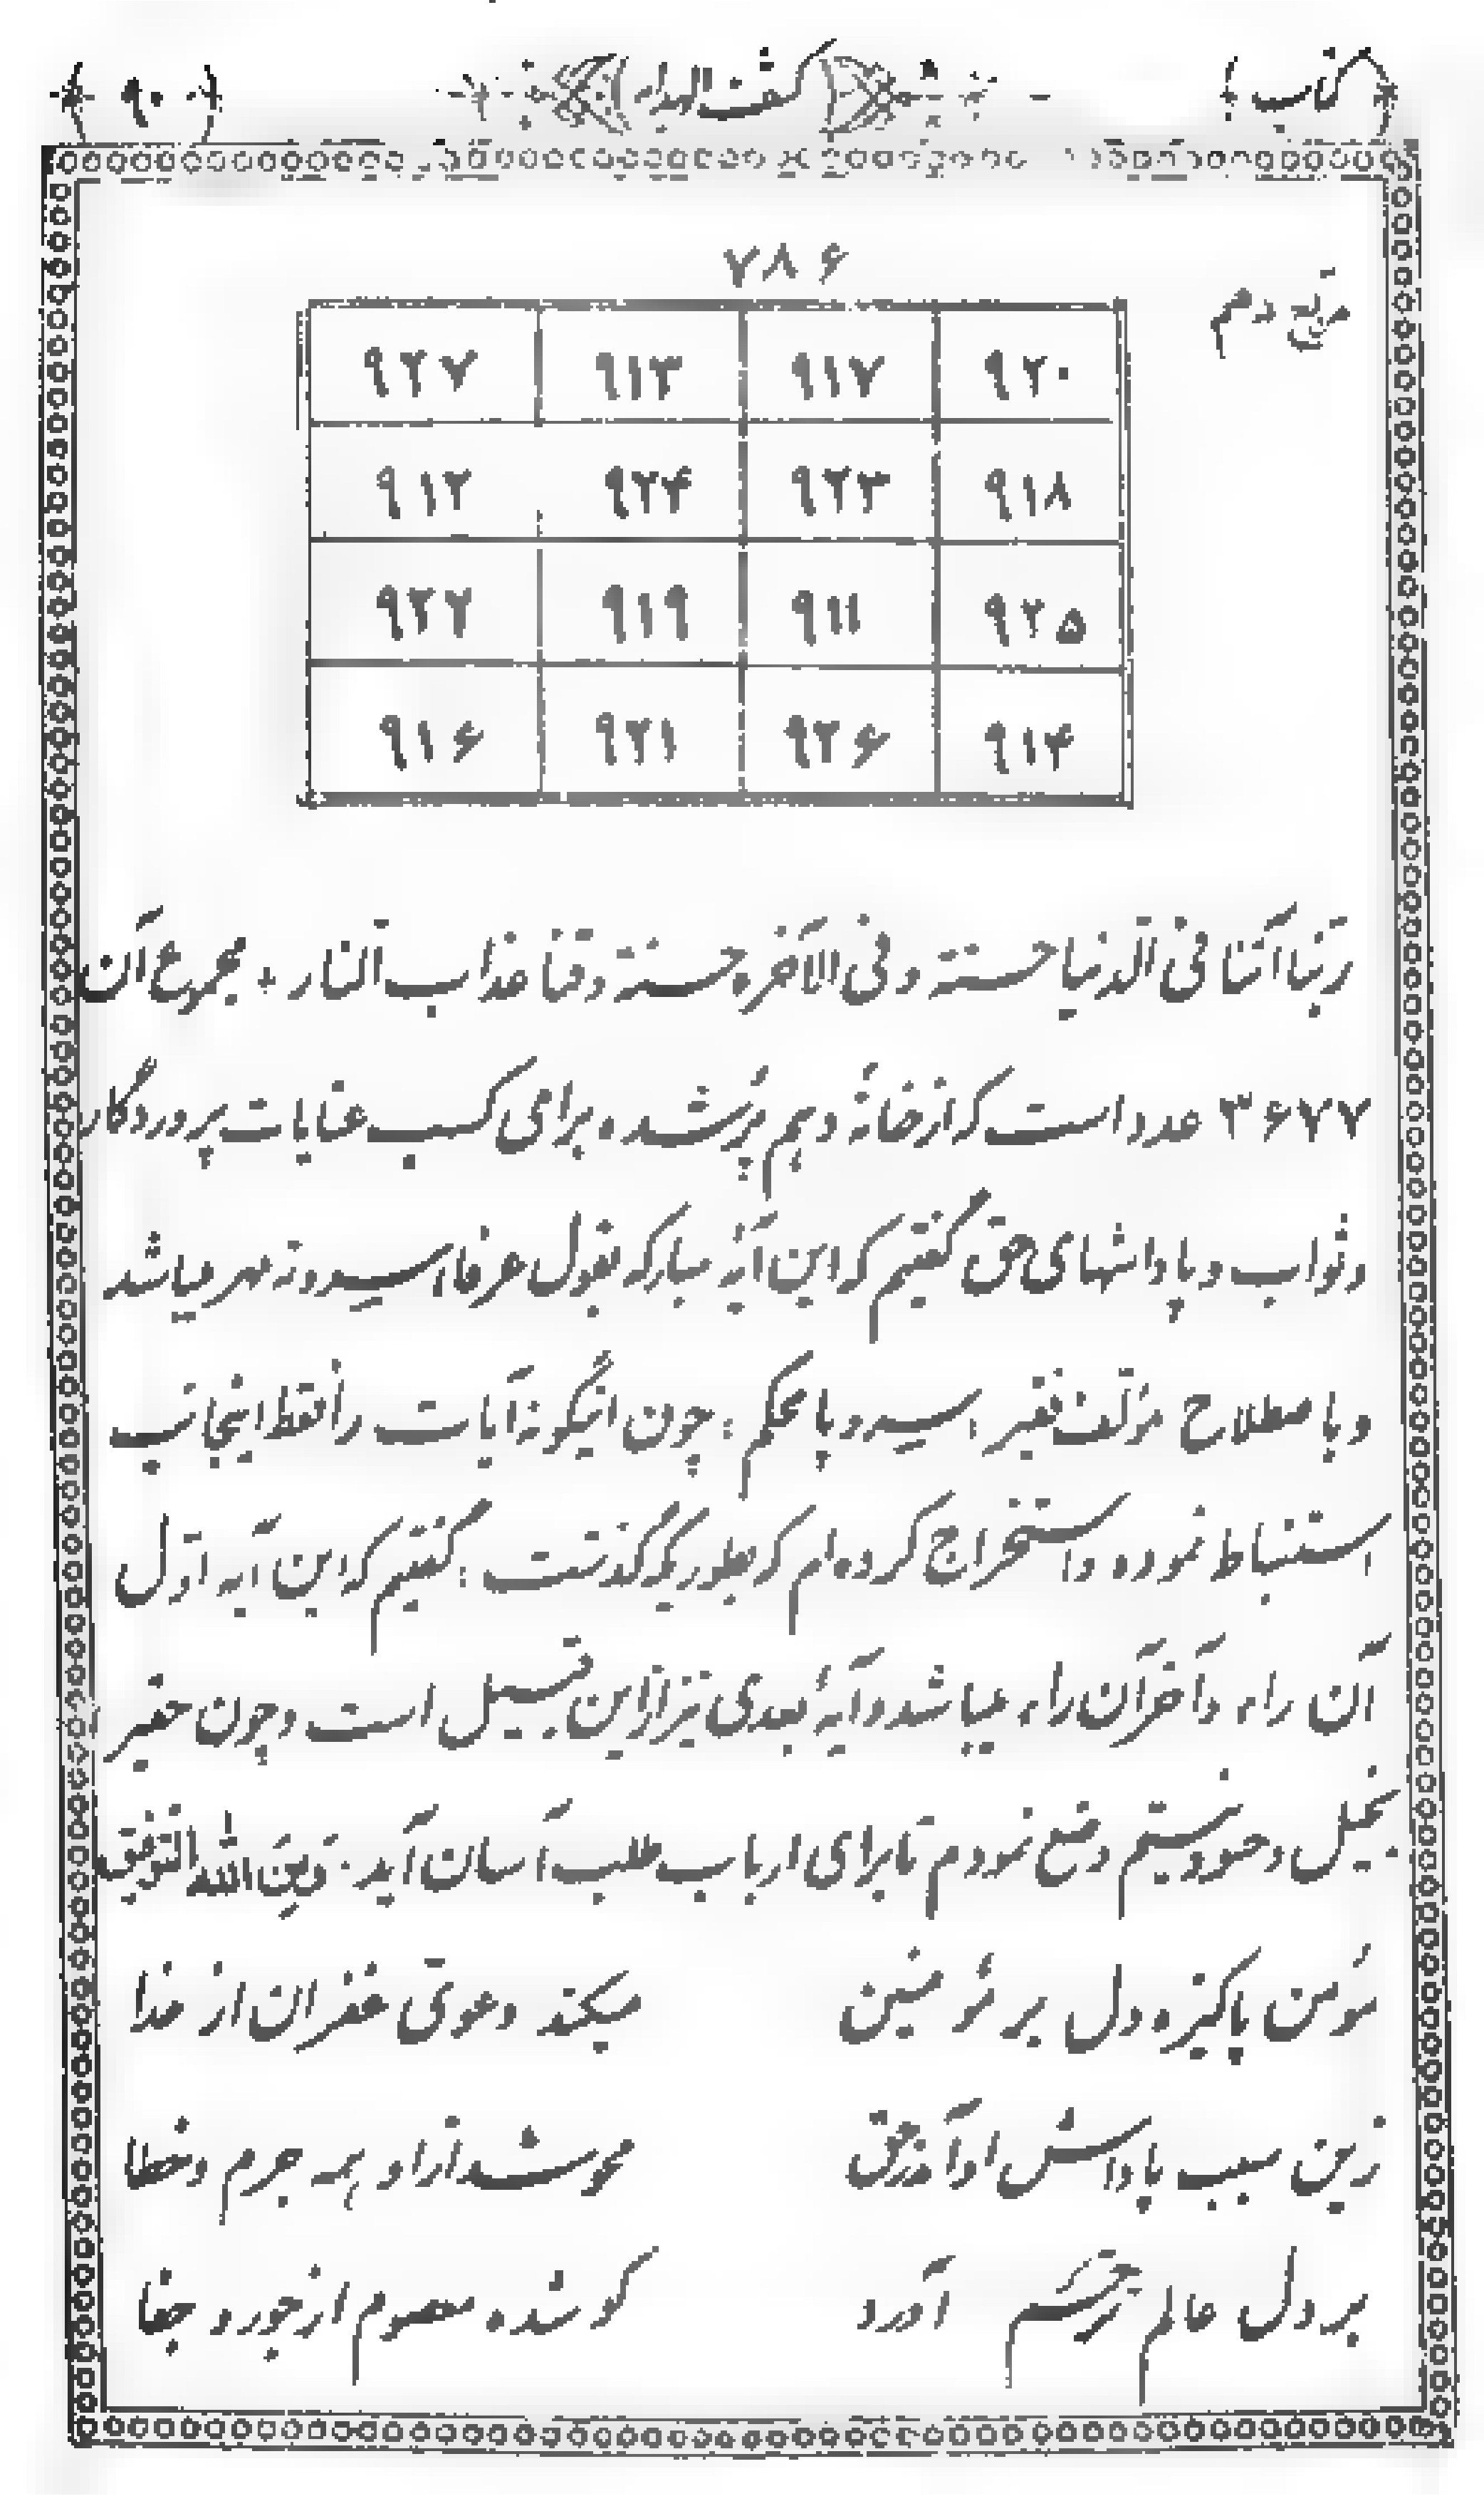 کتاب ( کشف الهدایه ) ( ۹۰ )
۷۸۶
مربع دهم
۹۲۷ ۹۱۳ ۹۱۷ ۹۲۰
۹۱۲ ۹۲۴ ۹۲۳ ۹۱۸
۹۲۲ ۹۱۹ ۹۱۱ ۹۲۵
۹۱۶ ۹۲۱ ۹۲۶ ۹۱۴
ربّنا آتنا فی الدّنیا حسنة و فی الآخره حسنة و قنا عذاب النّار ؛ مجموع آن
۳۶۷۷ عدد است که از خانهٔ دهم پُر شده برای کسب عنایات پروردگار
و ثواب و پاداشهای حق گفتیم که این آیهٔ مبارکه بقول عرفاء سیدونه مهر میباشد
و باصطلاح مؤلّف فقیر ، سیدوپا محکم ؛ چون اینگونه آیات را فقط اینجانب
استنباط نموده و استخراج کرده‌ام که بطوریکه گذشت ؛ گفتیم که این آیه اوّل
آن راء و آخر آن راء میباشد و آیهٔ بعدی نیز از این قبیل است و چون حقیر
بخیل و حسود نیستم وضع نمودم تا برای ارباب طلب آسان آید . وَمِنَ الله التّوفیق
مؤمن پاکیزه دل بر مؤمنین میکند دعوتی غفران از خدا
زین سبب پاداش او آمد ز حق محو شد از او همه جرم و خطا
بر دل عالم ترحّم آورد کو شده معصوم از جور و جفا